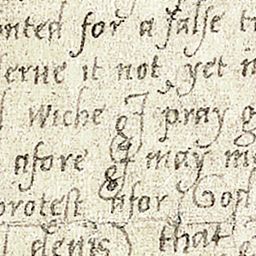 onted for a false tr
serue it not yet i
wiche I pray g
afore I may me
protest afor God
denis that